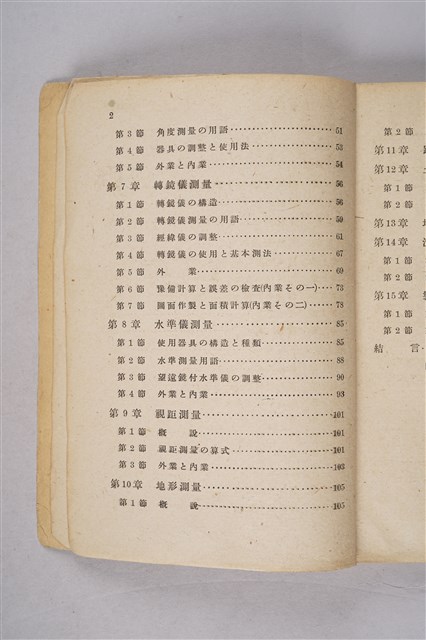 2
第3節 角度測量の用語……………51
第4節 器具の調整と使用法……………53
第5節 外業と內業……………54
第7章 轉鏡儀測量……………56
第1節 轉鏡儀の構造……………56
第2節 轉鏡儀測量の用語……………59
第3節 經緯儀の調整……………61
第4節 轉鏡儀の使用と基本測法……………67
第5節 外 業……………69
第6節 豫備計算と誤差の檢査(內業その一)…73
第7節 圖面作製と面積計算(內業その二)……78
第8章 水準儀測量……………85
第1節 使用器具の構造と種類……………85
第2節 水準測量用語……………88
第3節 望遠鏡付水準儀の調整……………90
第4節 外業と內業……………93
第9章 視距測量……………101
第1節 槪 說……………101
第2節 視距測量の算式……………101
第3節 外業と內業……………103
第10章 地形測量……………105
第1節 槪 說……………105
第2節
第11章
第12章
第1節
第2節
第13章
第14章
第1節
第2節
第15章
第1節
第2節
結 言